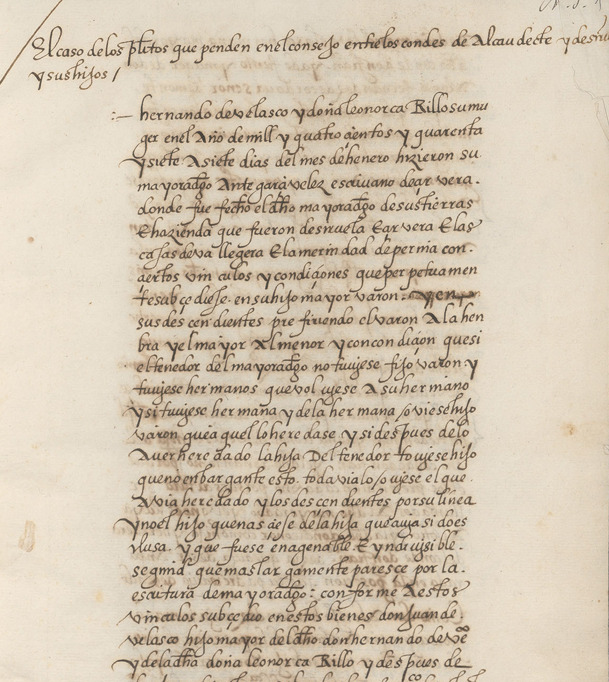 El caso de los pleitos que penden en el consejo entre los condes de Alcaudete y de
y sus hijos /
hernando de velasco y doña leonor ca Rillo su mu
ger en el Año de mill y quatro çientos y quarenta
y siete A siete dias del mes de henero hizieron su
mayoradgo Ante garçi velez escrivano de
donde fue fecho el dho mayoradgo de sus tierras
E hazienda que fueron de siruela E arvera E las
casas de vallegera E la merindad de pernia con
çiertos vinculos y condiçiones que perpetuamen
te subçediese en su hijo mayor varon
sus descendientes prefiriendo el varon A la hen
bra y el mayor Al menor y con condiçion que si
el tenedor del mayoradgo no tuvjese fijo varon y
tuvjese hermanos que volvjese A su hermano
y si tuvjese hermana y de la hermana oviese hijo
varon que aquel lo heredase y si despues de lo
Aver heredado la hija Del tenedor tovjese hijo
que no enbargante esto toda via lo ovjese el que
Avia heredado y los descendientes por su linea
y no el hijo que nasçiese de la hija que avja sido es
clusa y que fuese enagenable E yndivisible
segund que mas largamente paresce por la
escritura de mayoradgo : conforme A estos
vinculos subçedio en estos bienes don Juan de
velasco hijo mayor del dho don hernando de veco
y de la dha doña leonor ca Rillo y despues de